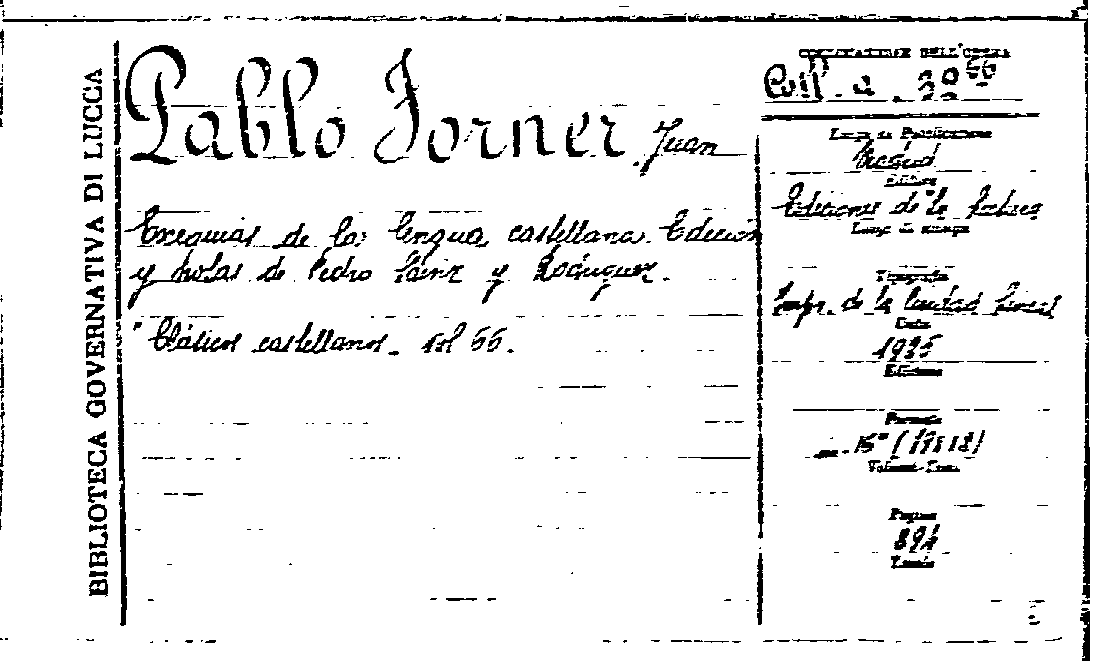 BIBLIOTECA GOVERNATIVA DI LUCCA
Pablo Forner, Juan
Exequias de la lengua castellana. Edición
y notas de Pedro Sáinz y Rodríguez.
"Clásicos castellanos. vol 66.
COLLOCAZIONE DELL'OPERA
Coll. a. 32 66
Luogo di Pubblicazione
Madrid
Editore
Ediciones de "la lectura
Luogo di stampa
Tipografia
Impr. de la Ciudad lineal
Data
1925
Edizione
Formato
Volumi-Tomi
Pagine